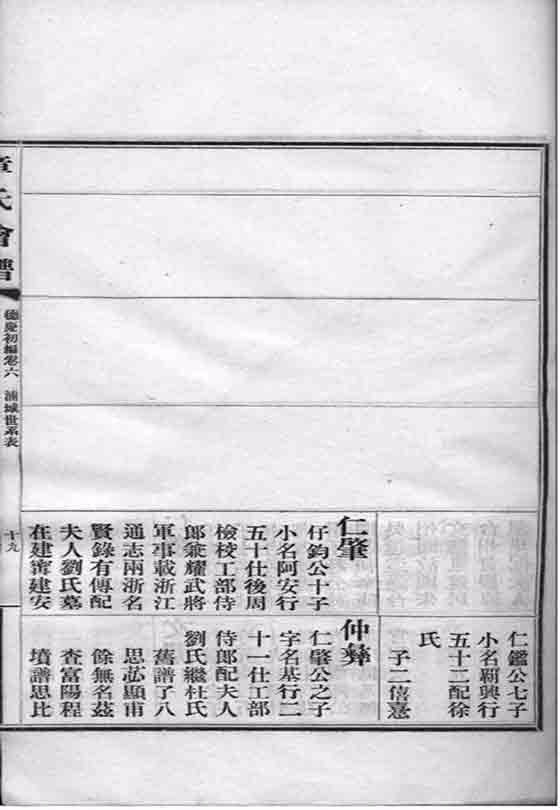 仁鑑公七子
小名翮興行
五十二配徐
氏
子二僖憙
仁肇
仔鈞公十子
小名阿安行
五十仕後周
檢校工部侍
郎兼耀武將
軍事載浙江
通志兩浙名
賢錄有傳配
夫人劉氏墓
在建寗建安
仲彝
仁肇公之子
字名基行二
十一仕工部
侍郎配夫人
劉氏繼杜氏
舊譜了八
思苾顯甫
餘無名茲
查富陽程
墳譜思比
章氏會譜
德慶初編卷六 浦城世系表
十九